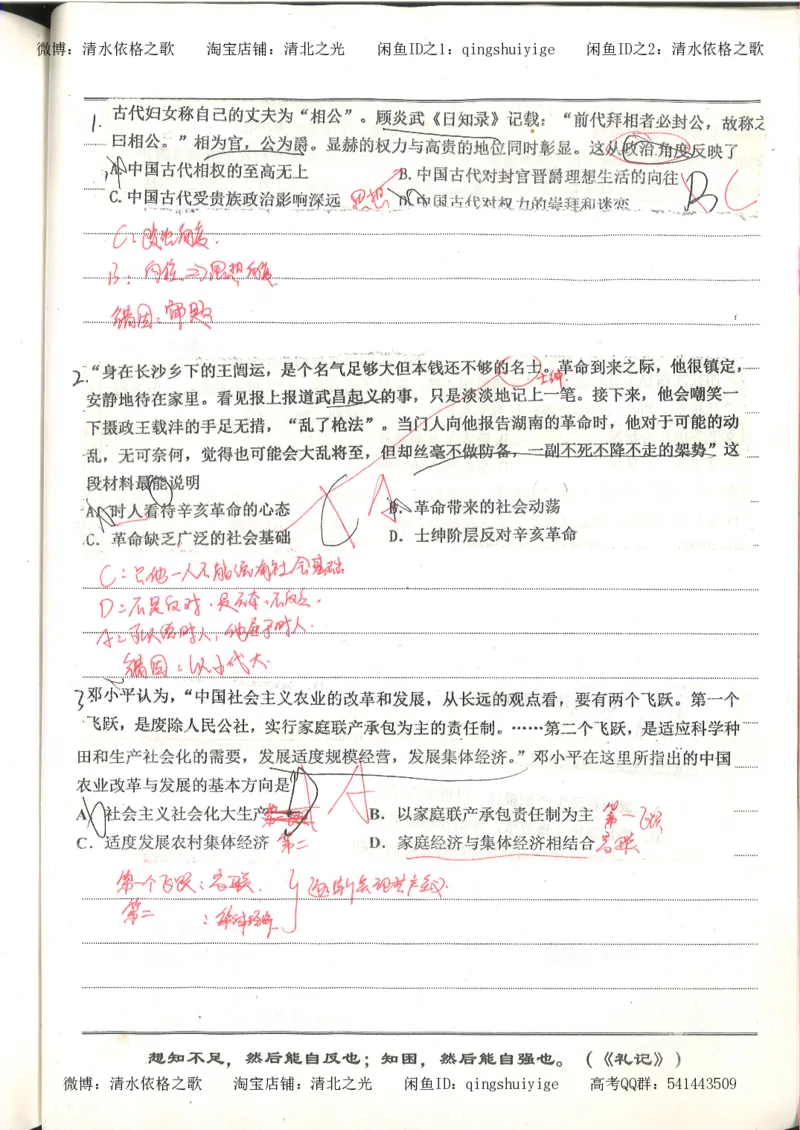 微博：清水依格之歌 淘宝店铺：清北之光 闲鱼ID之1：qingshuiyige 闲鱼ID之2：清水依格之歌
1. 古代妇女称自己的丈夫为“相公”。顾炎武《日知录》记载：“前代拜相者必封公，故称之
曰相公。”相为官，公为爵。显赫的权力与高贵的地位同时彰显。这从政治角度反映了
A. 中国古代相权的至高无上 B. 中国古代对封官晋爵理想生活的向往 B C
C. 中国古代受贵族政治影响深远 思想 D. 中国古代对权力的崇拜和迷恋
C：政治角度.
B：向往⇒思想角度
错因：审题
2. “身在长沙乡下的王闿运，是个名气足够大但本钱还不够的名士。革命到来之际，他很镇定，
士绅
安静地待在家里。看见报上报道武昌起义的事，只是淡淡地记上一笔。接下来，他会嘲笑一
下摄政王载沣的手足无措，“乱了枪法”。当门人向他报告湖南的革命时，他对于可能的动
乱，无可奈何，觉得也可能会大乱将至，但却丝毫不做防备，一副不死不降不走的架势”这
段材料最能说明
A. 时人看待辛亥革命的心态 B. 革命带来的社会动荡
C. 革命缺乏广泛的社会基础 D. 士绅阶层反对辛亥革命
C A
C：只他一人不能
D：不是反对
A：时人，他属于时人.
错因：以小代大.
3 邓小平认为，“中国社会主义农业的改革和发展，从长远的观点看，要有两个飞跃。第一个
飞跃，是废除人民公社，实行家庭联产承包为主的责任制。……第二个飞跃，是适应科学种
田和生产社会化的需要，发展适度规模经营，发展集体经济。”邓小平在这里所指出的中国
农业改革与发展的基本方向是 D A
A. 社会主义社会化大生产 B. 以家庭联产承包责任制为主 第一飞跃
C. 适度发展农村集体经济 第二 D. 家庭经济与集体经济相结合
第一个飞跃：
第二 ：集体经济
想知不足，然后能自反也；知困，然后能自强也。（《礼记》）
微博：清水依格之歌 淘宝店铺：清北之光 闲鱼ID：qingshuiyige 高考QQ群：541443509